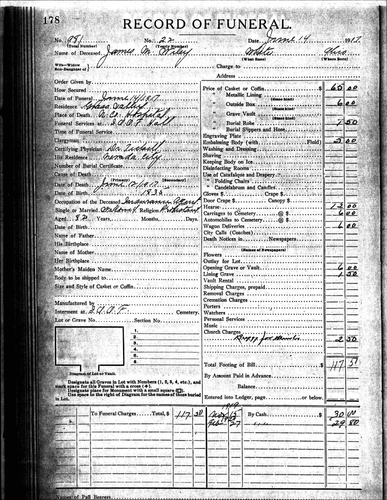 178
RECORD OF FUNERAL.
No. 951 No. 22 Date June 14 1917
(Total Number) (Yearly Number)
Name of Deceased James M. Wiley White Ohio
(What Race) (Where Born)
Charge to
Address
Order Given by
How Secured
Date of Funeral June 14 1917
Residence Grass Valley
Place of Death N. Co. Hospital
Funeral Services at I.O.O.F. Hall
Time of Funeral Service
Clergyman
Certifying Physician Dr.
His Residence Nevada City
Number of Burial Certificate
Cause of Death
Date of Death June 12 1917
Date of Birth 1835
Occupation of the Deceased Insurance Agent
Single or Married Religion
Aged 82 Years Months, Days.
Name of Father
His Birthplace
Name of Mother
Her Birthplace
Mother's Maiden Name
Body to be shipped to
Size and Style of Casket or Coffin
Manufactured by
Interment at I.O.O.F. Cemetery.
Lot or Grave No. Section No.
1
2
3
4
5
6
7
Diagram of Lot or Vault.
Designate all Graves in Lot with Numbers (1, 2, 3, 4, etc.), and
mark space for this Funeral with a cross
Designate place for Monument with a small square
Use space to the right of Diagram for the names of those buried
in Lot.
Price of Casket or Coffin $ 65 00
" Metallic Lining
" Outside Box 6 00
" Grave Vault
" Burial Robe 7 50
Burial Slippers and Hose
Engraving Plate
Embalming Body (with Fluid)
Washing and Dressing
Shaving
Keeping Body on Ice
Disinfecting Rooms
Use of Catafalque and Drapery
" Folding Chairs
" Candelabrum and Candles
Gloves $ Crape $
Door Crape $ Canopy $
Hearse 12 00
Carriages to Cemetery @ $ 6 00
Automobiles to Cemetery @ $
Wagon Deliveries 6 00
City Calls (Coaches)
Death Notices in Newspapers
(Names of Newspapers)
Flowers
Outlay for Lot
Opening Grave or Vault 6 00
Lining Grave 1 50
Vault Rental
Shipping Charges, prepaid
Removal Charges
Cremation Charges
Porters
Watchers
Personal Services
Music
Church Charges
Buggy for Minister 2 50
Total Footing of Bill $ 117 50
By Amount Paid in Advance
Balance
Entered into Ledger, page or below.
To Funeral Charges Total, $ 117 50 By Cash $ 30 00
Names of Pall Bearers